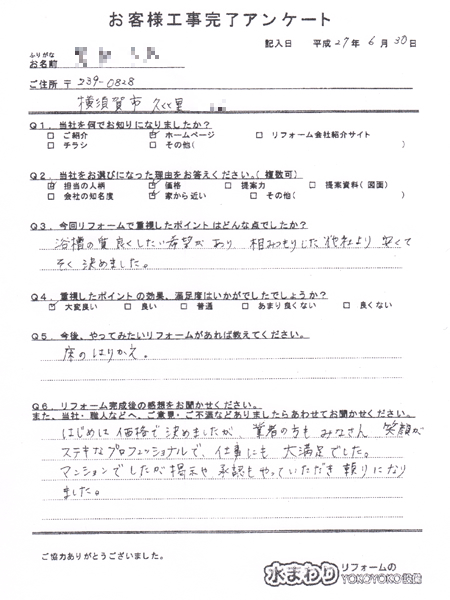 お客様工事完了アンケート
記入日 平成 27年 6月 30日
ふりがな
お名前
ご住所 〒 239-0828
横須賀市 久比里
Q1．当社を何でお知りになりましたか？
□ ご紹介 ☑ ホームページ □ リフォーム会社紹介サイト
□ チラシ □ その他( )
Q2．当社をお選びになった理由をお答えください。( 複数可)
☑ 担当の人柄 ☑ 価格 □ 提案力 □ 提案資料( 図面)
□ 会社の知名度 ☑ 家から近い □ その他( )
Q3．今回リフォームで重視したポイントはどんな点でしたか？
浴槽の質良くしたい希望があり 相みつもりした他社より 安くて
そく決めました。
Q4．重視したポイントの効果、満足度はいかがでしたでしょうか？
☑ 大変良い □ 良い □ 普通 □ あまり良くない □ 良くない
Q5．今後、やってみたいリフォームがあれば教えてください。
床のはりかえ。
Q6．リフォーム完成後の感想をお聞かせください。
また、当社・職人などへ、ご意見・ご不満などありましたらあわせてお聞かせください。
はじめは 価格で 決めましたが、業者の方も みなさん 笑顔が
ステキなプロフェッショナルで、仕事にも 大満足でした。
マンションでしたが掲示や 承認もやっていただき 頼りになり
ました。
ご協力ありがとうございました。
水まわり リフォームの
YOKOYOKO設備